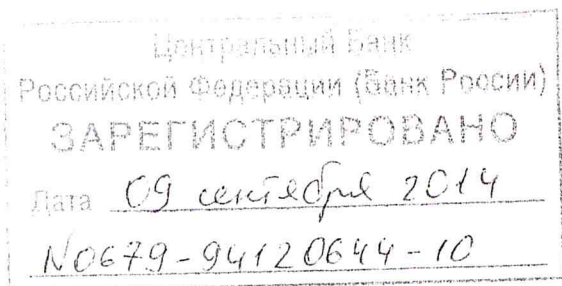 Центральный Банк
Российской Федерации (Банк России)
ЗАРЕГИСТРИРОВАНО
Дата 09 сентября 2014
N0679-94120644-10